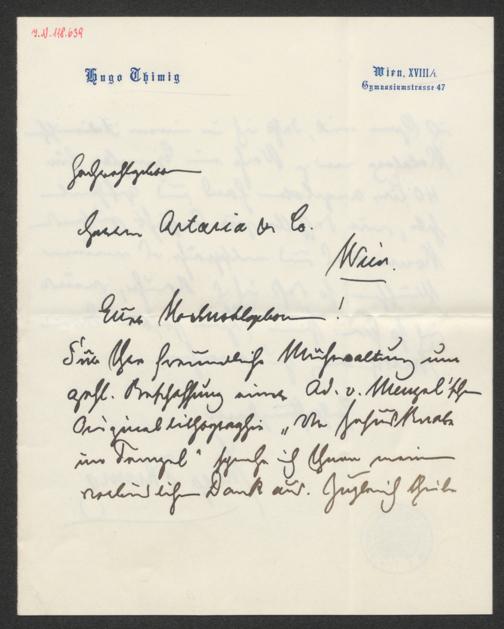 I.N. 118.639
Hugo Thimig
Wien, XVIII/1.
Gymnasiumstrasse 47
Hochwohlgeboren
Herren Artaria & Co.
Wien.
Euer Hochwohlgeboren!
Für Ihre freundliche Mühewaltung um
gefl. Beschaffung einer Ad. v. Menzel'schen
Originallithographie „Der Jesus Knabe
im Tempel" spreche ich Ihnen meinen
verbindlichen Dank aus. Zugleich theile